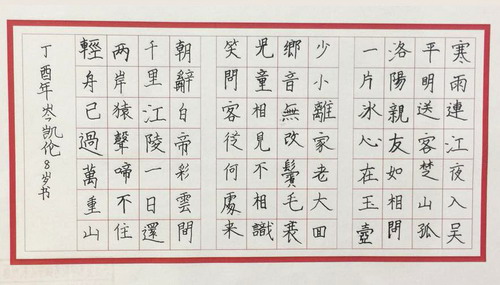 寒雨連江夜入吴
平明送客楚山孤
洛陽親友如相問
一片冰心在玉壺
少小離家老大回
鄉音無改鬢毛衰
児童相見不相識
笑問客從何處来
朝辭白帝彩雲間
千里江陵一日還
两岸猿聲啼不住
輕舟已過萬重山
丁酉年岑凯伦8岁书